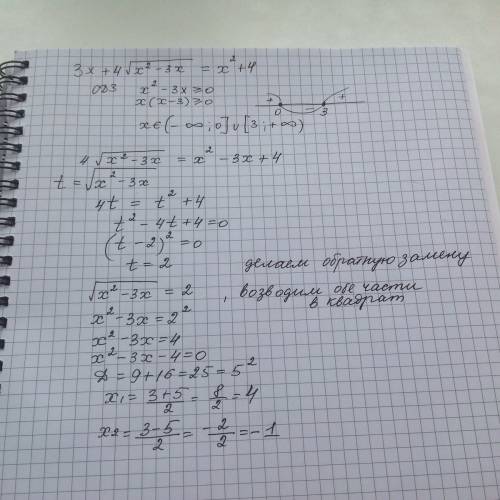 3x + 4√(x² - 3x) = x² + 4
ОДЗ x² - 3x ≥ 0
x(x - 3) ≥ 0
+ - +
0 3
x ∈ (-∞; 0] ∪ [3; +∞)
4√(x² - 3x) = x² - 3x + 4
t = √(x² - 3x)
4t = t² + 4
t² - 4t + 4 = 0
(t - 2)² = 0
t = 2 делаем обратную замену
√(x² - 3x) = 2 , возводим обе части
в квадрат
x² - 3x = 2²
x² - 3x = 4
x² - 3x - 4 = 0
D = 9 + 16 = 25 = 5²
x₁ = (3+5)/2 = 8/2 = 4
x₂ = (3-5)/2 = -2/2 = -1